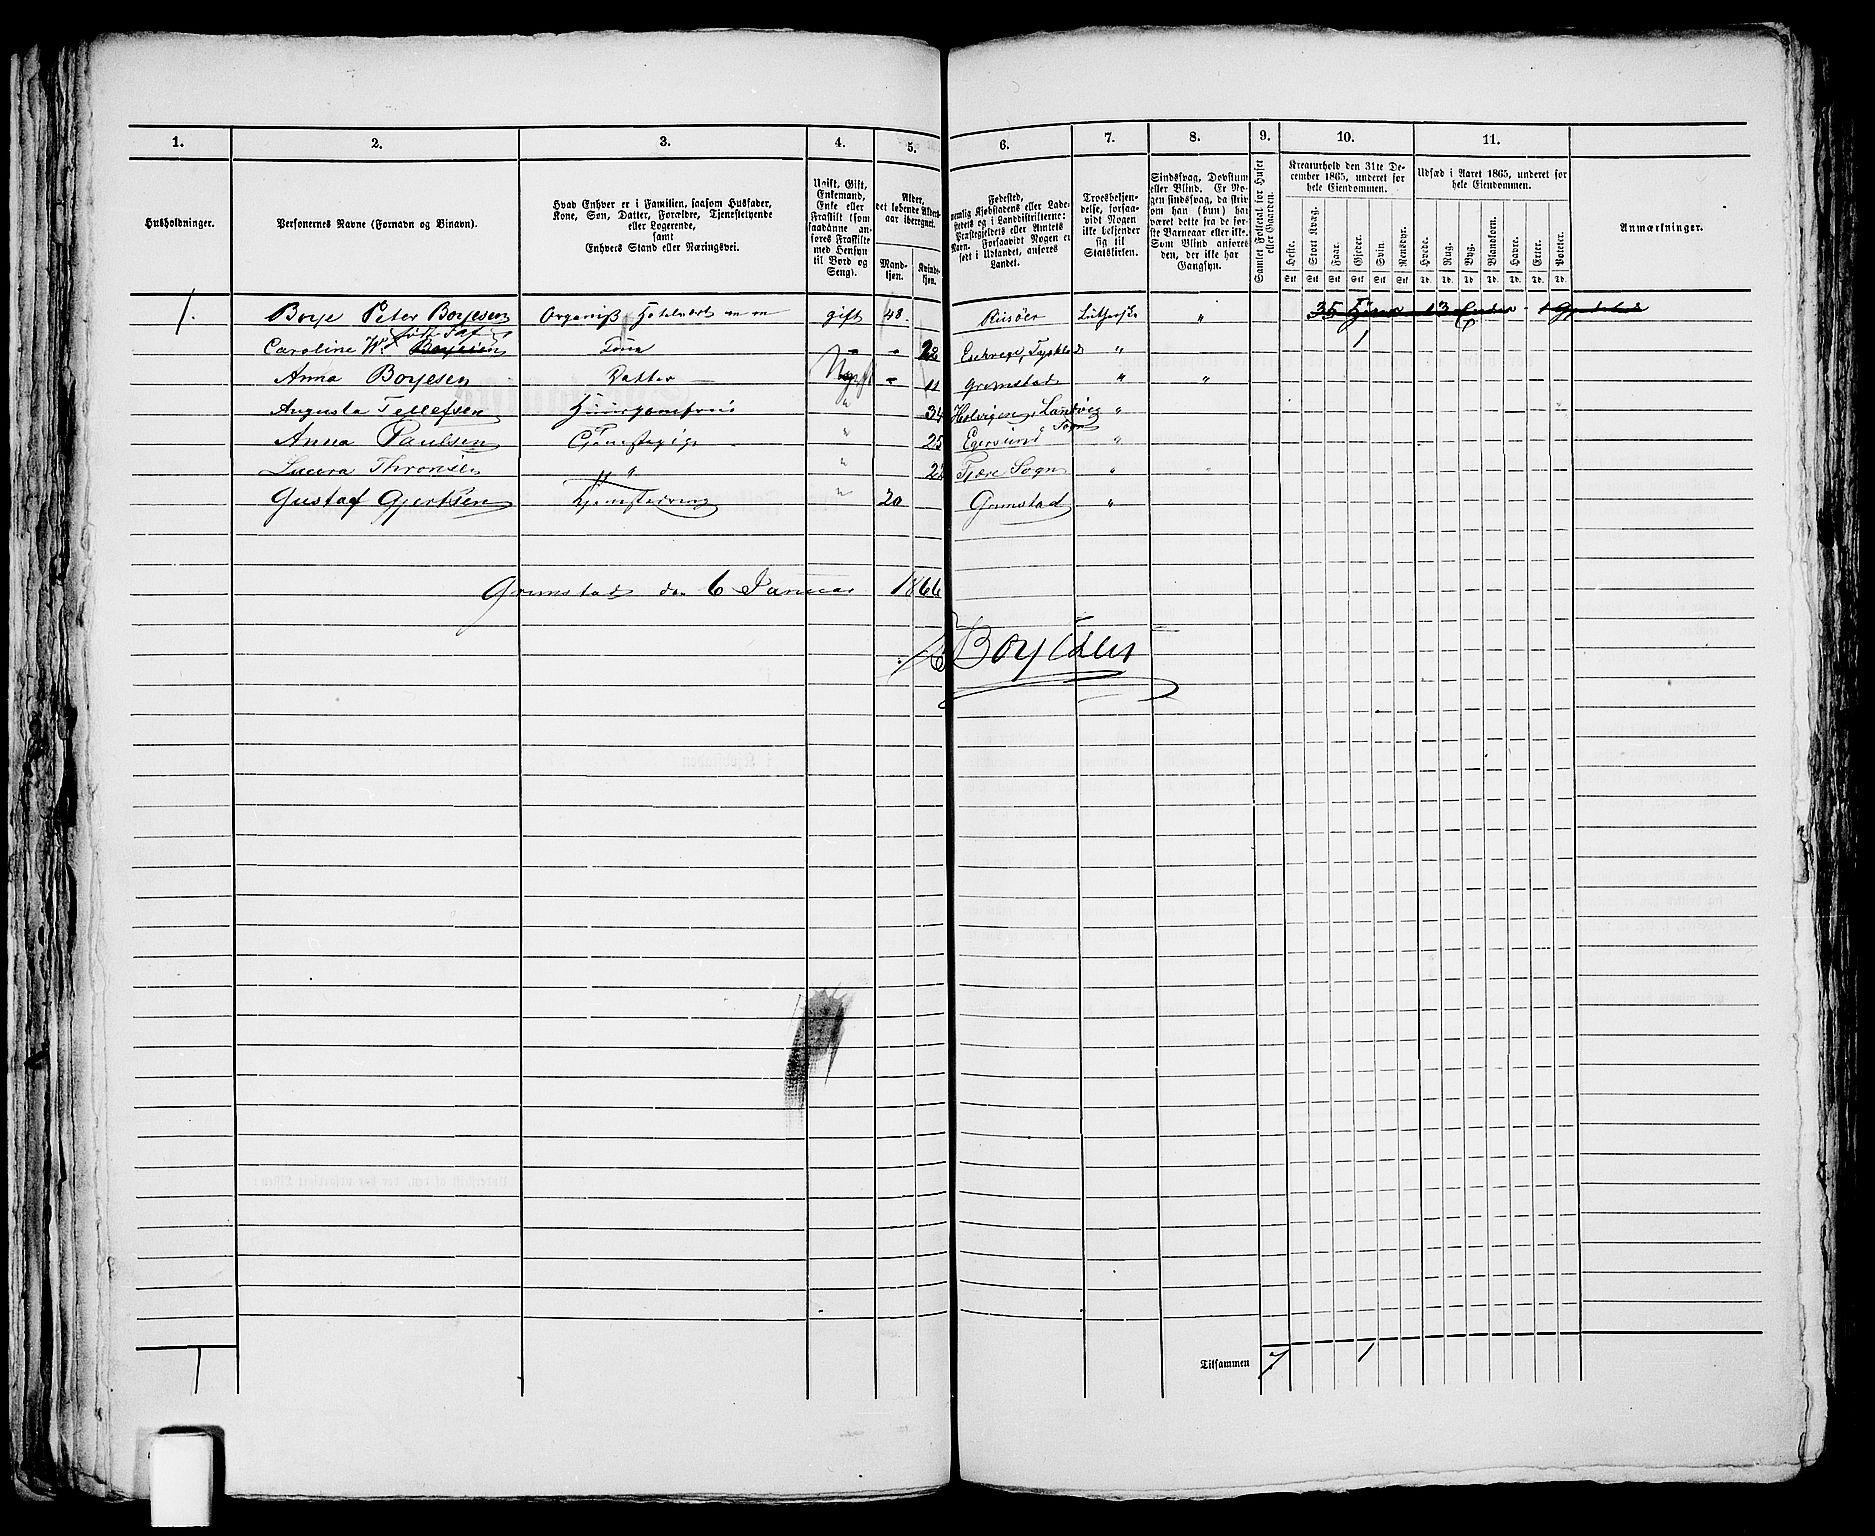 1. 2. 3. 4. 5. 6. 7. 8. 9. 10. 11.
Husholdninger.
Personernes Navne (Fornavn og Binavn).
Hvad Enhver er i Familien, saasom Husfader,
Kone, Søn, Datter, Forældre, Tjenestetyende
eller Logerende,
samt
Enhvers Stand eller Næringsvei.
Ugift, Gift,
Enkemand,
Enke eller
Fraskilt (som
saadanne an-
føres Fraskilte
med Hensyn
til Bord og
Seng).
Alder,
det løbende Alders-
aar iberegnet.
Mand-
kjøn.
Kvinde-
kjøn.
Fødested,
nemlig Kjøbstadens eller Lade-
stedets og i Landdistrikterne:
Præstegjeldets eller Amtets
Navn. Forsaavidt Nogen er
født i Udlandet, anføres
Landet.
Troesbekjen-
delse, forsaa-
vidt Nogen
ikke bekjender
sig til
Statskirken.
Sindssvag, Døvstum
eller Blind. Er No-
gen sindssvag, da skriv
om han (hun) har
været dette fra de før-
ste Barneaar eller ikke.
Som Blind anføres
den, der ikke har
Gangsyn.
Samlet Folketal for Huset
eller Gaarden.
Kreaturhold den 31te De-
cember 1865, underet for
hele Eiendommen.
Heste. Stort Kvæg. Faar. Gjeder. Svin. Rensdyr.
Stk Stk Stk Stk Stk Stk
Udsæd i Aaret 1865, underet for
hele Eiendommen.
Hvede. Rug. Byg. Blandkorn. Havre. Erter. Poteter.
Td. Td. Td. Td. Td. Td. Td.
Anmærkninger.
1. Boye Peter Boyesen Organist Hotelvært m m gift 48. Riisøer Luthersk " 35 Høns 13 Ender 1
født
Caroline W. Boyesen Kone " " Eschwege, Tyskland " 1
Anna Boyesen Datter Ugift " 11 Grimstad " "
Augusta Tellefsen Huusjomfru " 34 Landvig "
Sogn
Anna Paulsen Tjenestepige " 25 Egersund "
Laura Thronsen " " 22 Fjære Sogn "
Gustaf Gjertsen Tjenestedreng " 20 Grimstad "
Grimstad den 6 Januar 1866
Boyesen
Tilsammen
1 7 1